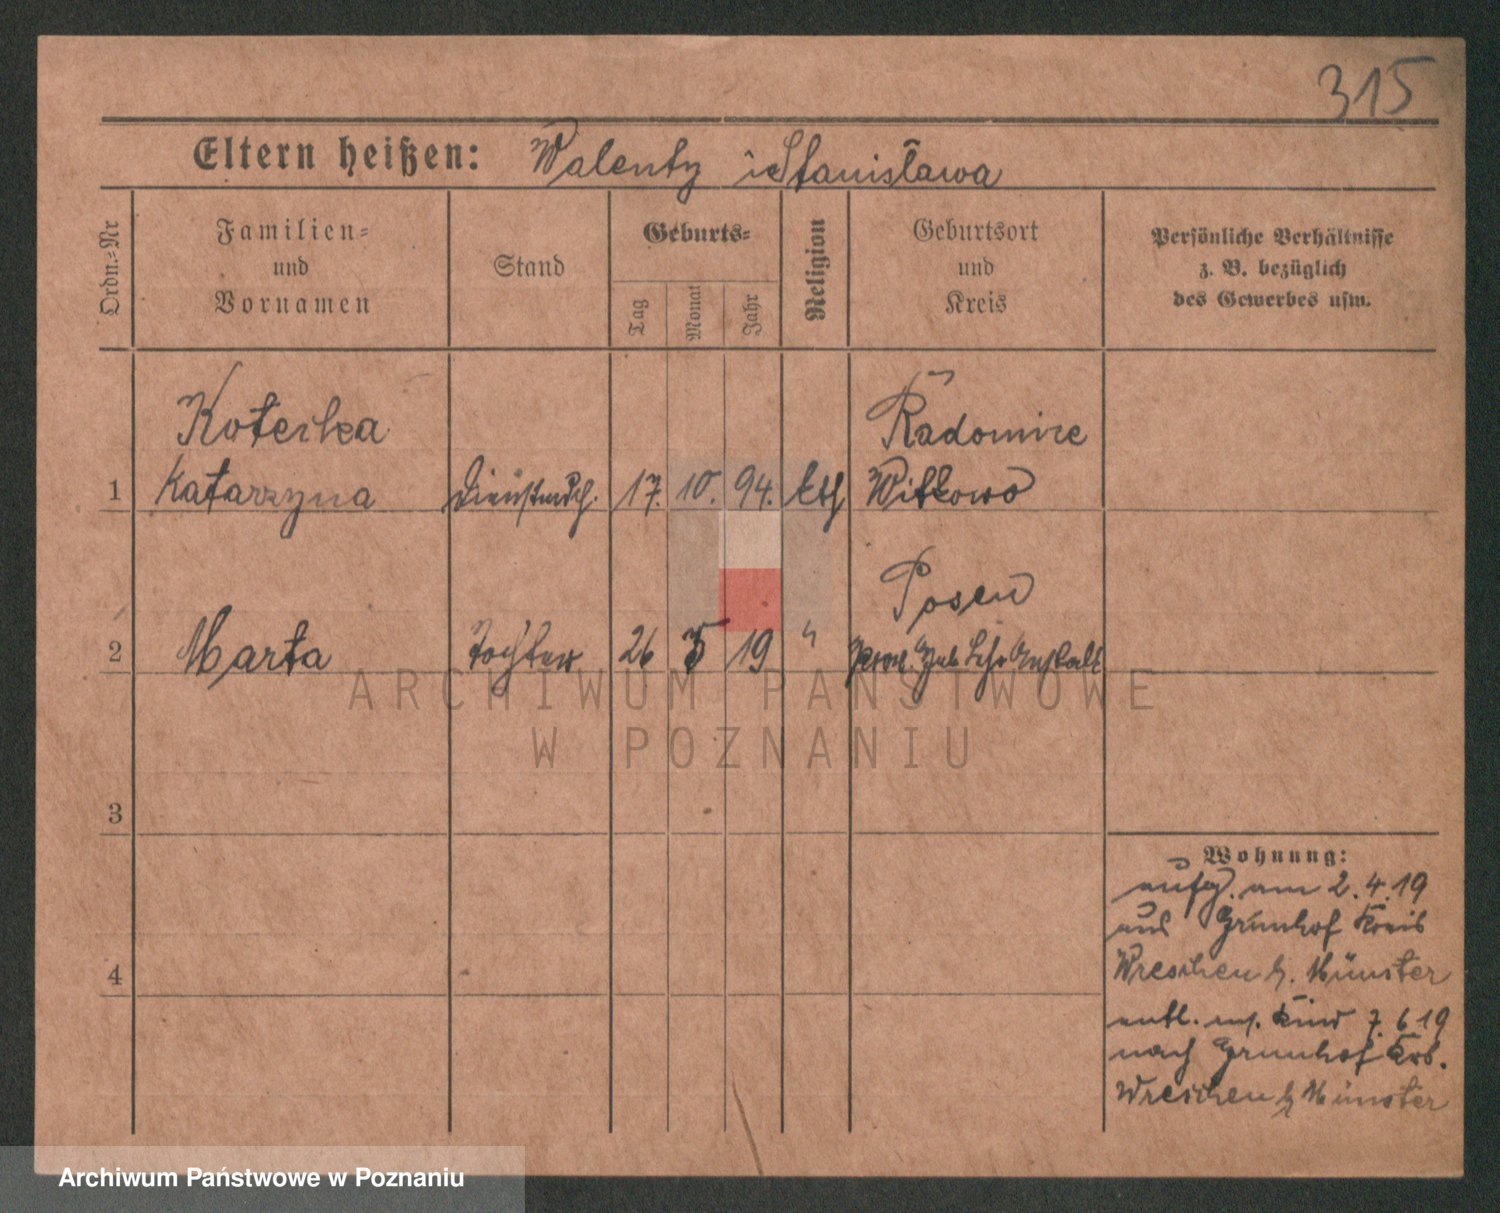 315
Eltern heißen: Walenty i Stanisława
Ordn.-Nr
Familien-
und
Vornamen
Stand
Geburts-
Tag
Monat
Jahr
Religion
Geburtsort
und
Kreis
Persönliche Verhältnisse
z. B. bezüglich
des Gewerbes usw.
Radomice
1 Katarzyna Dienstmdch. 17. 10. 94. kth Witkowo
Posen
2 Marta Tochter 26 5 19 " Prov. Heb. Lehr Anstalt
ARCHIWUM PAŃSTWOWE
W POZNANIU
3
4
Wohnung:
aufg. am 2.4.19
aus Grünhof Kreis
Wreschen b. Münster
entl. m. Kind 7.6.19
nach Grünhof Krs.
Wreschen b Münster
Archiwum Państwowe w Poznaniu